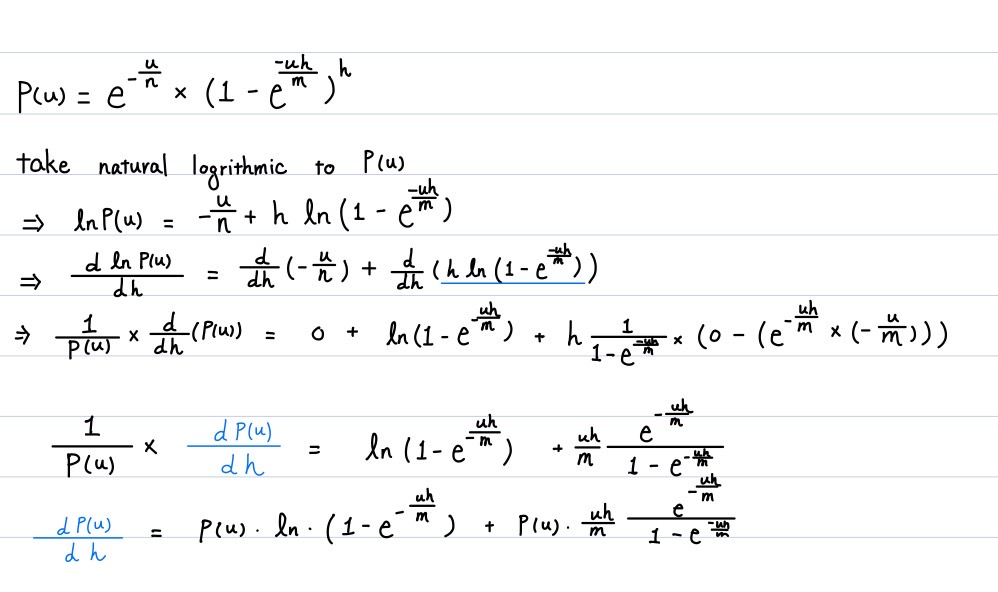 P(u) = e^{-\frac{u}{n}} × (1 - e^{\frac{-uh}{m}})^h
take natural logrithmic to P(u)
⇒ ln P(u) = -\frac{u}{n} + h ln (1 - e^{\frac{-uh}{m}})
⇒ \frac{d ln P(u)}{dh} = \frac{d}{dh} (-\frac{u}{n}) + \frac{d}{dh} (h ln (1 - e^{\frac{-uh}{m}}))
⇒ \frac{1}{P(u)} × \frac{d}{dh} (P(u)) = 0 + ln (1 - e^{-\frac{uh}{m}}) + h \frac{1}{1 - e^{\frac{-uh}{m}}} × (0 - (e^{-\frac{uh}{m}} × (-\frac{u}{m})))
\frac{1}{P(u)} × \frac{d P(u)}{d h} = ln (1 - e^{-\frac{uh}{m}}) + \frac{uh}{m} \frac{e^{-\frac{uh}{m}}}{1 - e^{-\frac{uh}{m}}}
\frac{d P(u)}{d h} = P(u) · ln · (1 - e^{-\frac{uh}{m}}) + P(u) · \frac{uh}{m} \frac{e^{-\frac{uh}{m}}}{1 - e^{\frac{-uh}{m}}}